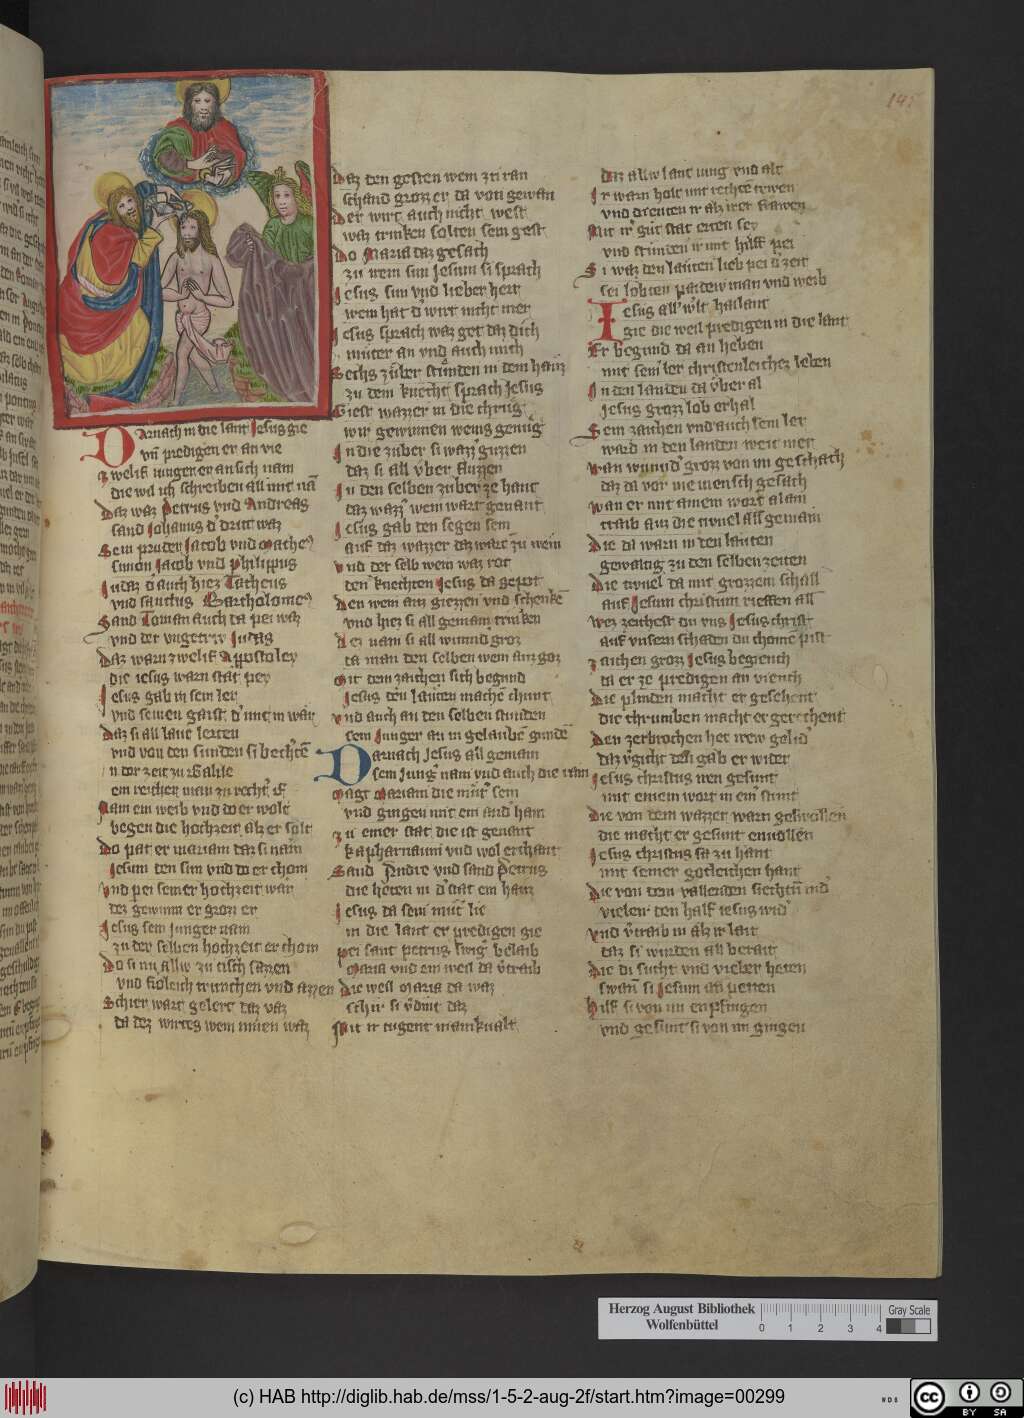 145
Darnach in die lant Jesus gie
vn̄ predigen er an vie
zwelif iunger er an sich nam
die wil ich schreiben all mit nā
Daz waz Petrus vnd Andreas
sand Johanns d' dritt waz
Sein pruder Jacob vnd Matheꝰ
simon Jacob vnd philippus
Judaz d' auch hiez Tatheus
vnd sanctus Bartholomeꝰ
Sand Toman auch da pei waz
vnd der vngetrew Judas
Daz warn zwelif Appostolen
die iesus warn stät per
Jesus gab in sein ler
vnd seinen gaist
Daz si all laut lerten
vnd von den sunden si bechertē
In der zeit zu Galile
ein reicher man zu recht' e
Nam ein weib vnd do er wolt
begen die hochzeit alz er solt
Do pat er mariam daz si nam
Jesum den sun vnd do er chom
Vnd pei seiner hochzeit wär
dez gewunn er grozz er
Jesus sein junger nam
zu der selben hochzeit er chom
Do si nu allw zu tisch sazzen
vnd froleich trunchen vnd azzen
Schier wart gelert daz vaz
da dez wirtes wein innen waz
Daz den gesten wein zu ran
schand grozz er da von gewan
Der wirt auch nicht west
waz trinken solten sein gest
Do Maria daz gesach
zu irem sun Jesum si sprach
Jesus sun vnd lieber herr
wein hat d' wirt nicht mer
Jesus sprach waz get daz dich
muter an vnd auch mich
Sechs zuber stunden in dem hauz
zu dem knecht sprach Jesus
Giest wazzer in die chrüg
wir gewinnen weins genüg
In die zuber si wazz' guzzen
daz si all vber fluzzen
In den selben zuber ze hant
daz wazz' wein wart genant
Jesus gab den segen sein
auf daz wazzer daz wart zu wein
vnd der selb wein waz rot
den knechten Jesus da gepot
Den wein auz giezzen vnd schenkē
vnd hiez si all gemain trinken
Dez nam si all wunnd' groz
da man den selben wein auz goz
Mit dem zaichen sich begund
Jesus den lauten machē chunt
vnd auch an den selben stunden
sein Junger an in gelaubē gundē
Darnach Jesus all gemain
sein Jung' nam vnd auch die rain
Magt Mariam die mut' sein
vnd gingen mit ein and' hain
zu einer stat die ist genant
kapharnaum vnd wol erchant
Sand Andre vnd sand Petrus
die heten in d' stat ein hauz
Jesus da sein mut' lie
in die lant er predigen gie
pei sant petrus swig' belaib
Maria vnd ein weil da v'traib
Die weil Maria da waz
schir si v'dint daz
Mit ir tugent manikualt
daz allw lant iung vnd alt
Ir warn holt mit rechtē trewen
vnd dienten ir alz irer frawen
Mit ir gut stat eiten ser
vnd stunden ir mit hilf pei
Si waz den lauten lieb pei d' zeit
sei lobten paidew man vnd weib
Jesus all' w'lt hailant
gie die weil predigen in die lant
Er begund da an heben
mit sein' ler christenleichez leben
In den landen da vber al
Jesus grozz lob erhal
Sein zaichen vnd auch sein ler
ward in den landen weit mer
wan wunnd' groz von im geschach
daz da vor nie mensch gesach
wan er mit ainem wort alain
traib auz die tiuuel all gemain
Die da warn in den lauten
gewaltig zu den selben zeiten
Die tiuuel da mit grozzem schall
auf Jesum christum rieffen all
wez zeichest du vns Jesus christ
auf vnsern schaden du chomē pist
zaichen grozz Jesus begiench
da er ze predigen an viench
Die plinden macht er gesehent
die chrumben macht er gerechent
Den zerbrochen her new gelid'
daz v'gicht den gab er wider
Jesus christus iren gesunt
mit einem wort in ein' stunt
Die von dem wazzer warn geswollen
die macht er gesunt enuollen
Jesus christus sa zu hant
mit seiner gotleichen hant
Die von dem vallenden siechtū nid'
vielen den half iesus wid'
vnd v'traib in alz ir lait
daz si wurden all berait
Die di sucht vnd vieber heten
swan si Jesum an petten
Hilf si von im enpfingen
vnd gesunt si von im gingen
Herzog August Bibliothek
Wolfenbüttel
0 1 2 3 4
Gray Scale
(c) HAB http://diglib.hab.de/mss/1-5-2-aug-2f/start.htm?image=00299
WDB
cc BY SA